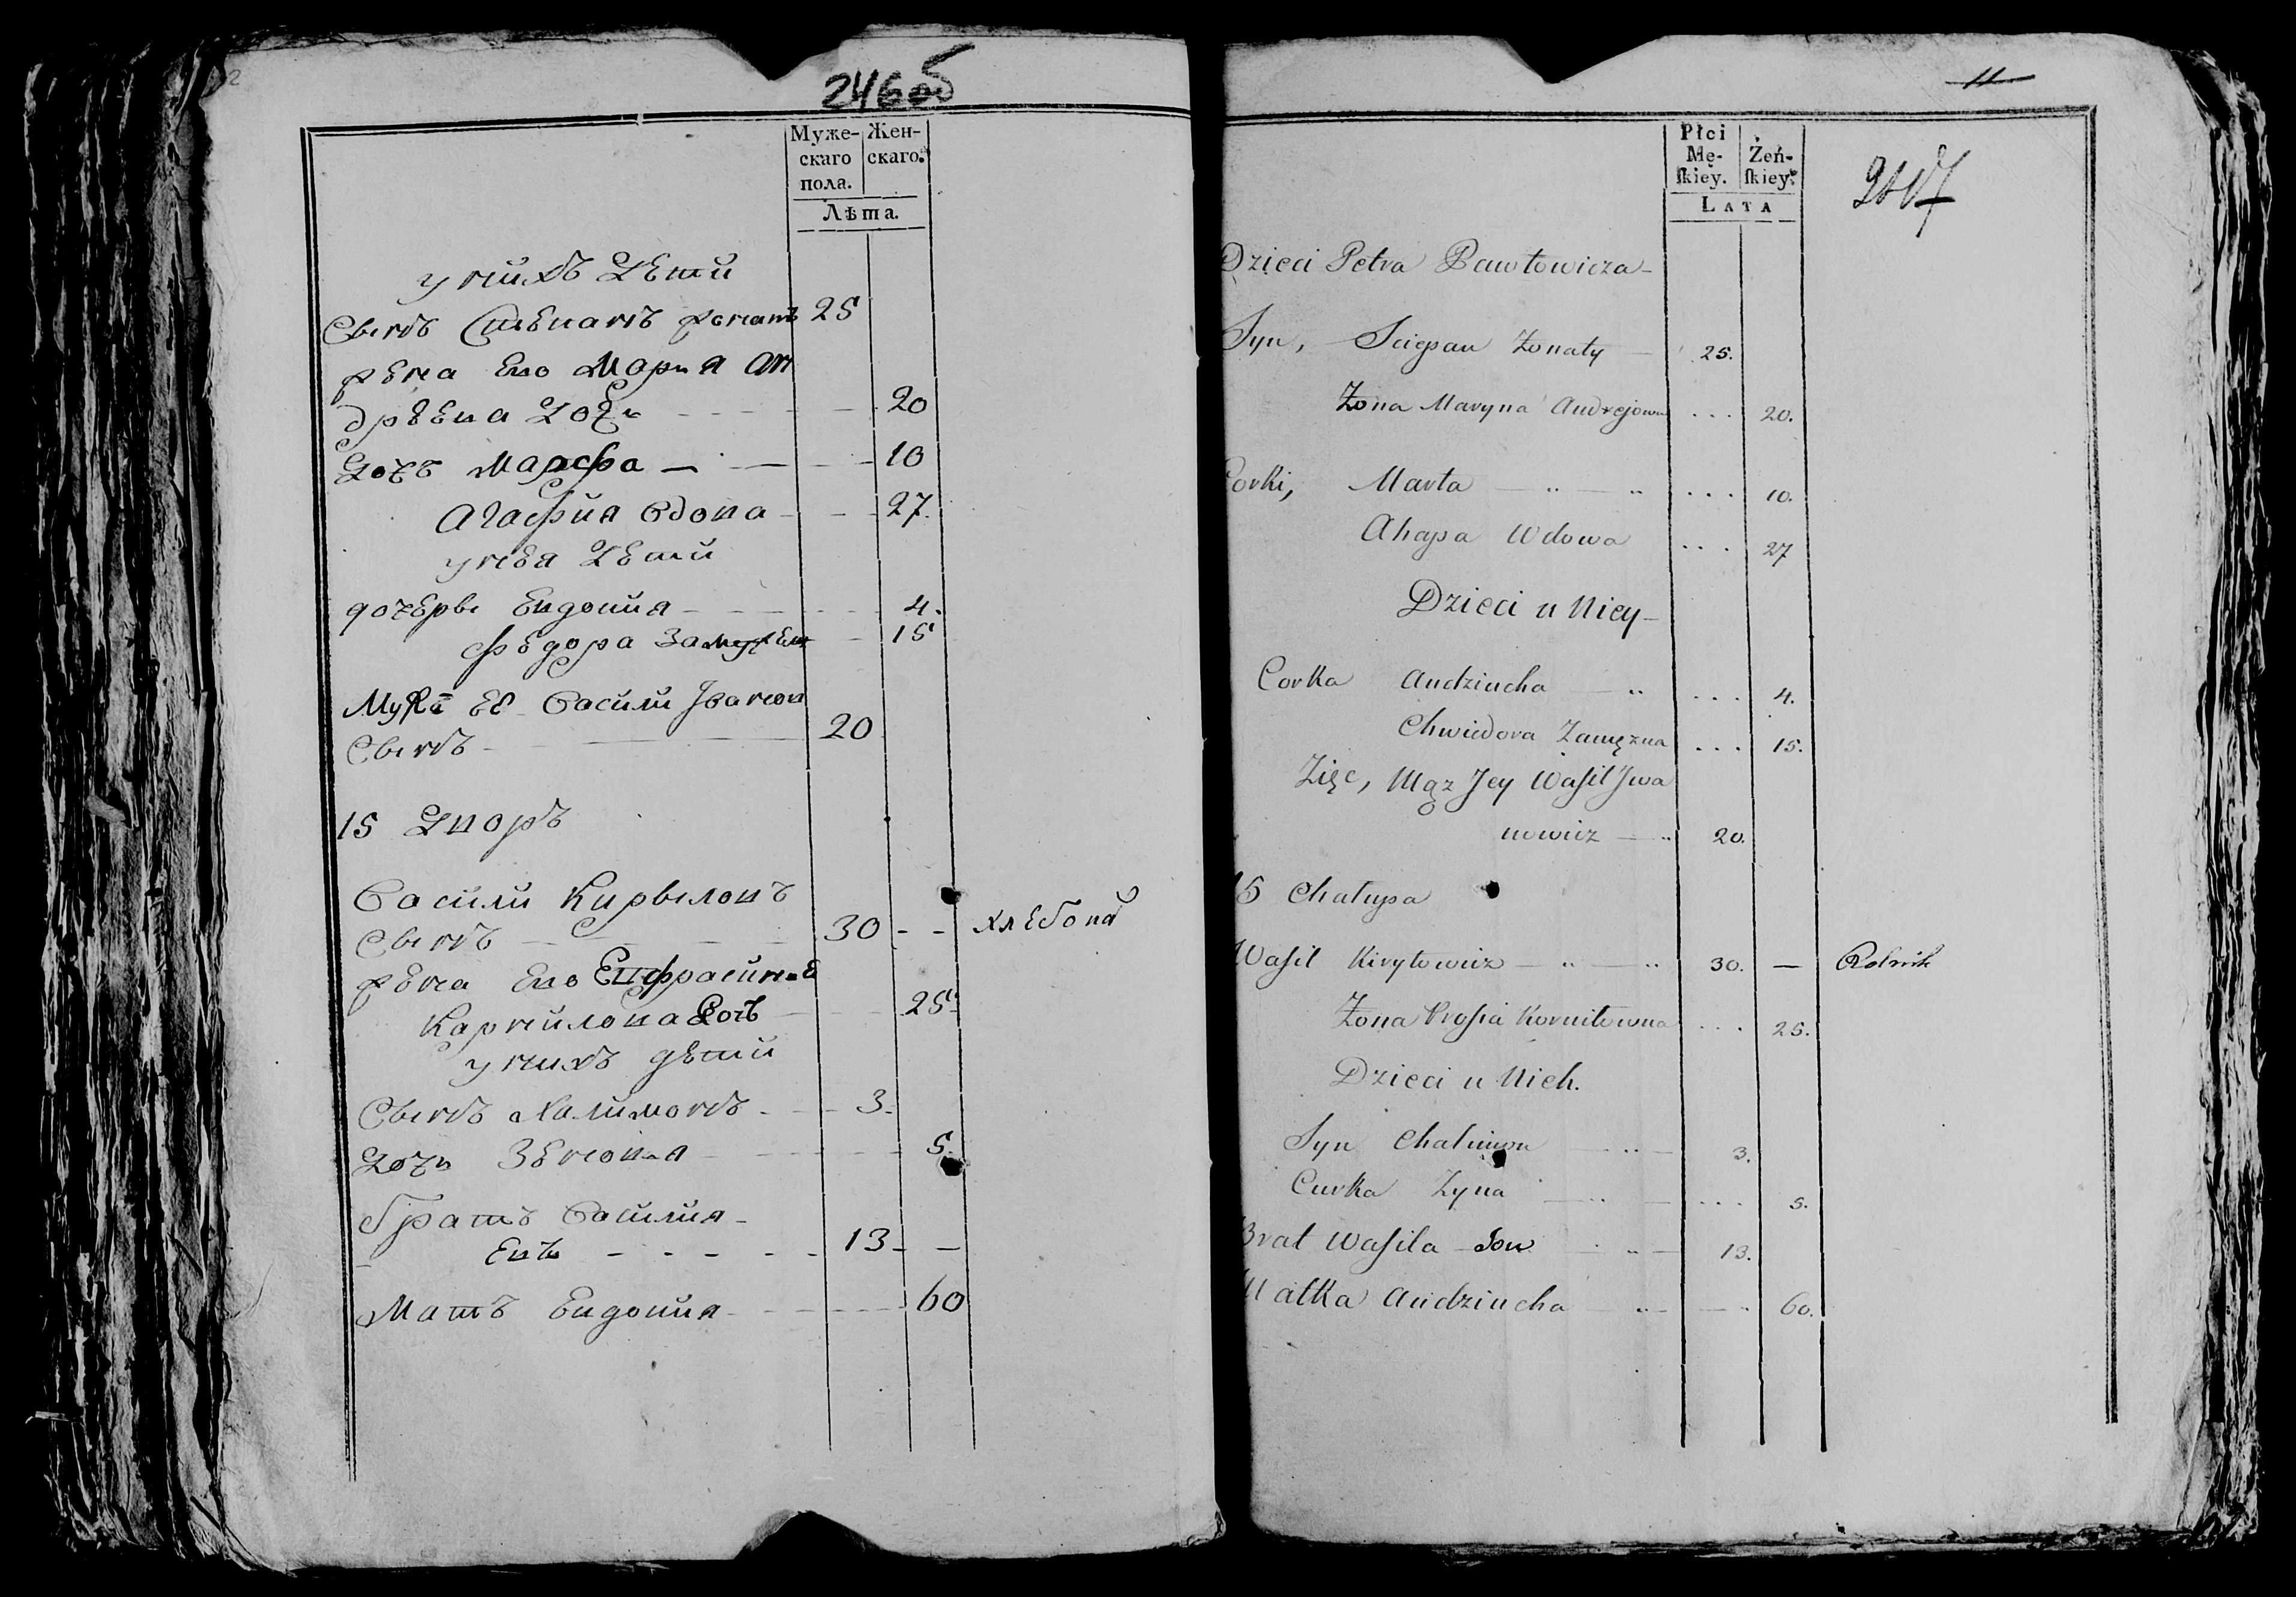 2
246 об
Муже-
скаго
пола.
Жен-
скаго.
Лѣта.
у нихъ Дети
Сынъ Степанъ женатъ 25
жена Ево Марья Ан
дрѣева дочь 20
Дочъ Марфа 10
Агафия вдова 27.
у нея Дети
дочеры Евдокия 4.
Федора замужем 15
Мужъ ЕЕ Василий Иванов
Сынъ 20
15 Дворъ
Васили Кирыловъ
Сынъ 30 - - хлебопа
жена Ево Евфросиния
Карнилова Дочъ 25
у нихъ дети
Сынъ Халимонъ 3.
Дочь Зеновия 5.
братъ Василия
13
Матъ Евдокия 60
11
Płci
Mę-
ſkiey.
Żeń-
ſkiey.
LATA
247
Dzieci Petra Pawłowicza
Syn, Sciepan Żonaty 25.
Żona Maryna Andrejowna 20.
Corki, Marta 10.
Ahapa Wdowa 27
Dzieci u Niey
Corka Audziucha 4.
Chwiedora Zamężna 15.
Zięc, Mąz Jey Waſil Jwa
nowicz 20.
15 Chałupa
Waſil Kiryłowicz 30. — Rolnik
Żona Proſia Korniłowna 25.
Dzieci u Nich.
Syn Chalimon 3.
Curka Zyna 5.
Brat Waſila 13.
Matka Audziucha 60.